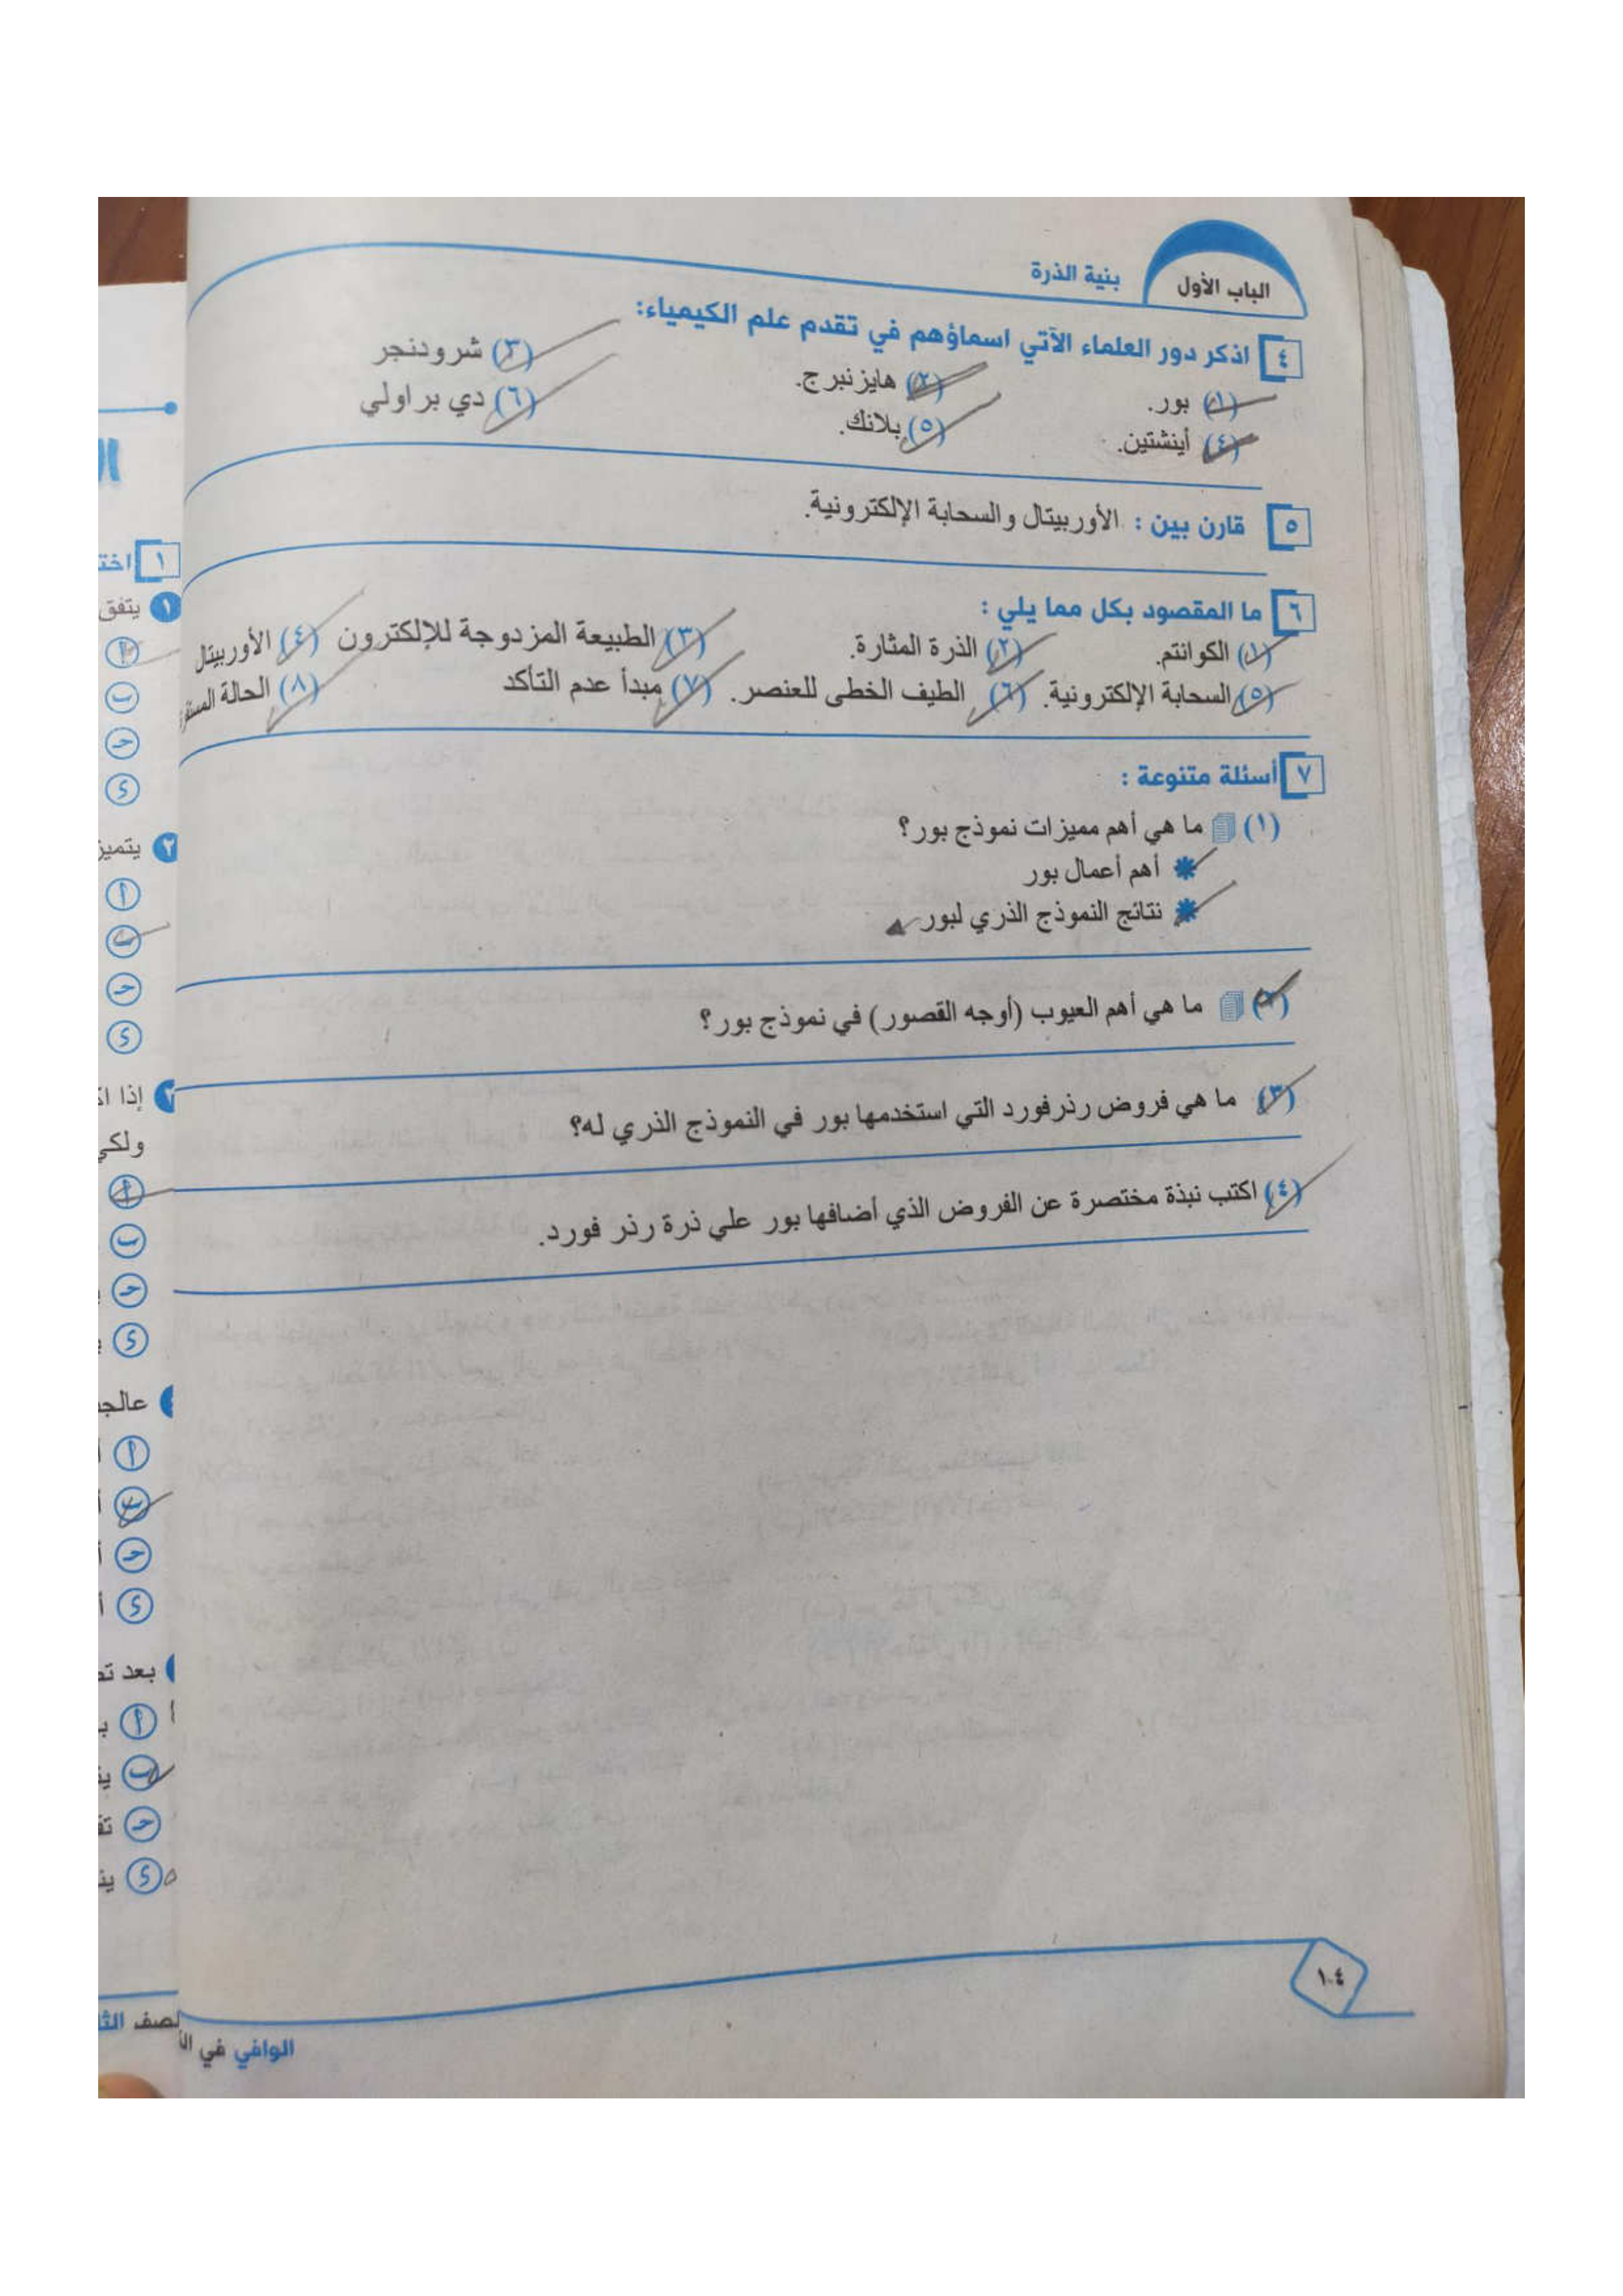 الباب الأول
بنية الذرة
٤ اذكر دور العلماء الآتي اسماؤهم في تقدم علم الكيمياء:
(١) بور. (٢) هايزنبرج. (٣) شرودنجر
(٤) أينشتين. (٥) بلانك. (٦) دي براولي
٥ قارن بين : الأوربيتال والسحابة الإلكترونية.
٦ ما المقصود بكل مما يلي :
(١) الكوانتم. (٢) الذرة المثارة. (٣) الطبيعة المزدوجة للإلكترون (٤) الأوربيتال
(٥) السحابة الإلكترونية. (٦) الطيف الخطى للعنصر. (٧) مبدأ عدم التأكد (٨) الحالة
٧ أسئلة متنوعة :
(١) ما هي أهم مميزات نموذج بور؟
أهم أعمال بور
نتائج النموذج الذري لبور
(٢) ما هي أهم العيوب (أوجه القصور) في نموذج بور؟
(٣) ما هي فروض رذرفورد التي استخدمها بور في النموذج الذري له؟
(٤) اكتب نبذة مختصرة عن الفروض الذي أضافها بور علي ذرة رذر فورد.
١٠٤
الوافي في
١
١ يتفق
أ
ب
حـ
د
٢ يتميز
أ
ب
حـ
د
إذا
ولكي
أ
ب
حـ
د
أ
ب
حـ
د
بعد
أ
ب
حـ
د